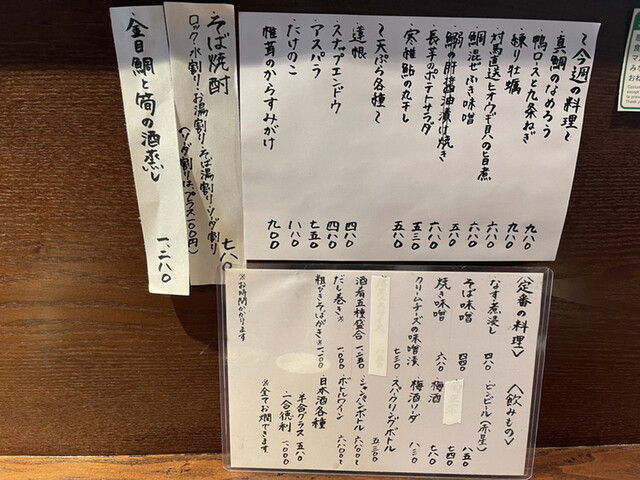 〜今週の料理〜
・真鯛のなめろう 九八〇
・鴨ロースと九条ねぎ 九八〇
・練り牡蠣 六八〇
・対馬直送ヒオウギ貝の旨煮 六八〇
・鯛混ぜふき味噌 五八〇
・鰯の肝醤油漬け焼き 六八〇
・長芋のポテトサラダ 五三〇
・寒稚鮎の丸干し 五八〇
〜天ぷら各種〜
・蓮根 四八〇
・スナップエンドウ 四八〇
・アスパラ 七五〇
・たけのこ 一、一八〇
・椎茸のからすみがけ 九〇〇
そば焼酎 七八〇
ロック・水割り・お湯割り・そば湯割り・ソーダ割り
(ソーダ割りはプラス一〇〇円)
金目鯛と筍の酒蒸し 一、二八〇
〈定番の料理〉
・なす煮浸し 四八〇
・そば味噌 四四〇
・焼き味噌 六八〇
・クリームチーズの味噌漬 七三〇
・酒肴五種盛合 一、二五〇
・だし巻き※ 一、〇〇〇
・粗びきそばがき※ 一、二〇〇
※お時間かかります
〈飲みもの〉
・ビンビール(赤星) 八五〇
七四〇
・梅酒 七八〇
・梅酒ソーダ 八三〇
・スパークリングボトル 五、三〇〇
・シャンパンボトル 六八〇〇〜
・ボトルワイン 六八〇〇〜
・日本酒各種
半合グラス 五八〇
一合徳利 一、〇〇〇
※全てお燗できます。